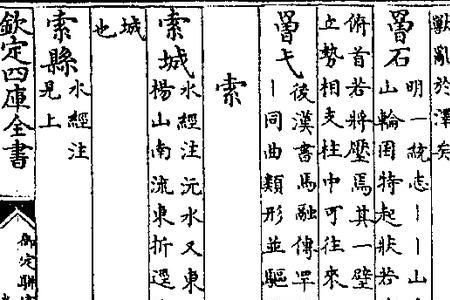 獸亂於澤矣
罾石
明一統志丨丨山
山輪囷特起狀若
俯首若將壓焉其一壁
勢相支柱中可往來
罾弋
後漢書馬融傳罕
丨同曲類形並驅
索
索城
水經注沅水又東
楊山南流東折逕
城
也
索縣
水經注
見上
欽定四庫全書
御定駢